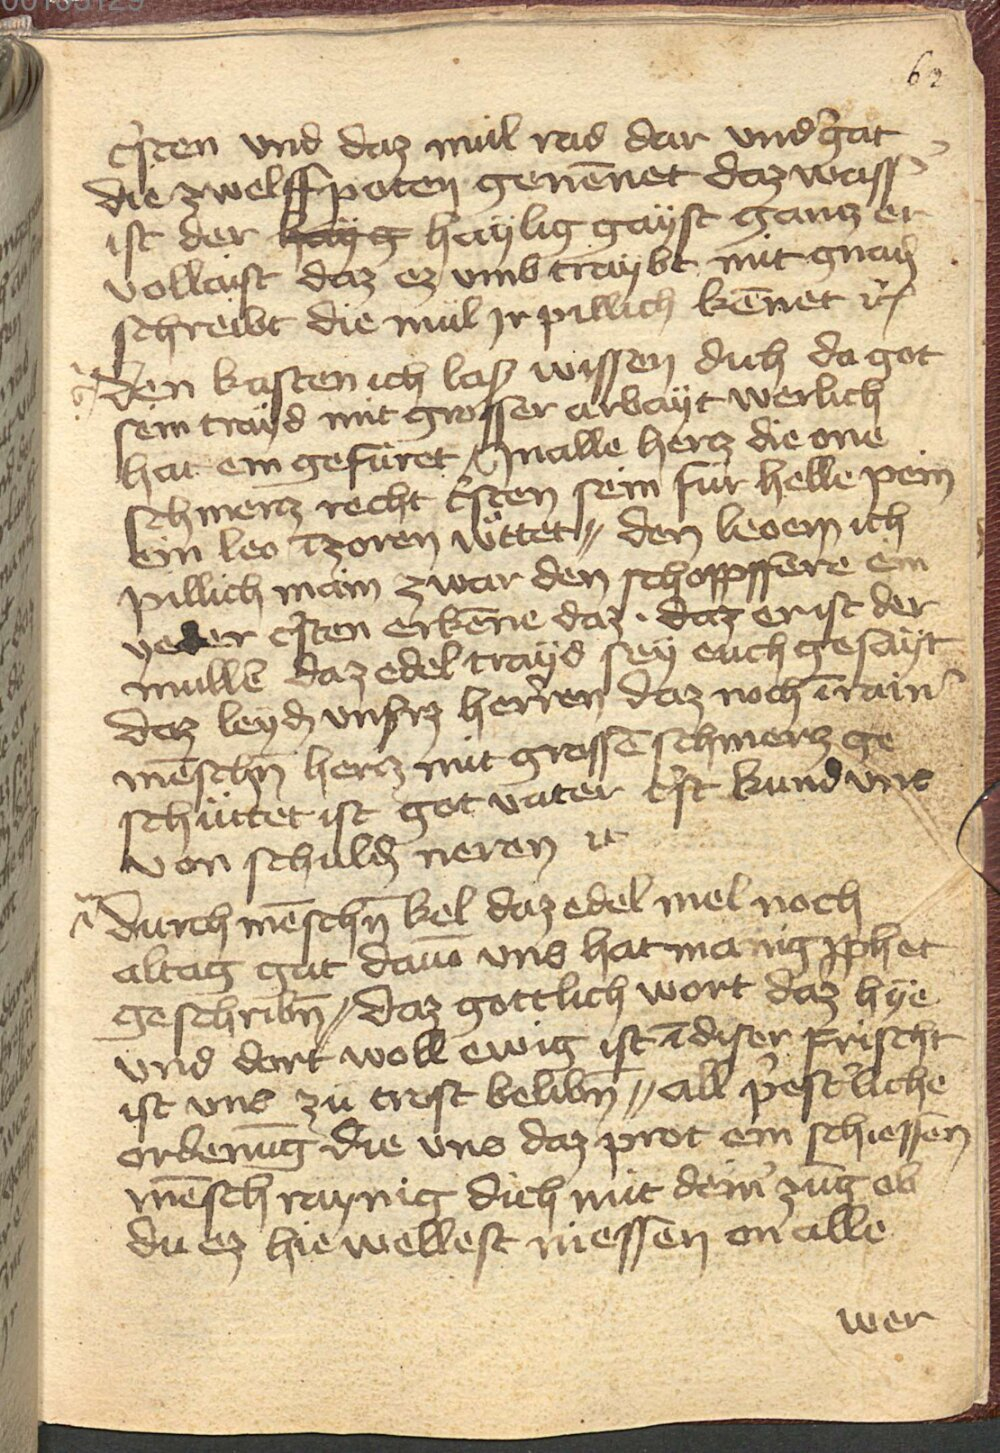 00105129
62
cʼsten vnd daz mül rad dar vndʼ gat
die zwelffpoten genēnet daz wassʼ
ist der hayg haÿlig gaÿst gantz er
vollaist daz ez vmb traybt mit gnad
schreibt die mül jr pillich kēnet
Den kasten ich las wissen dich da got
sein traÿd mit grosser arbaÿt werlich
hat ein gefüret / In alle hertz die one
schmertz recht cʼsten sein für helle pein
ein leo ī zoren wüttet // den leoem ich
pillich main zwar den schopffere ein
yeder cʼsten erkēne daz . daz er ist der
mullē daz edel trayd seÿ euch gesaÿt
daz leyd vnsʼrz herren daz noch ī rainʼ
mēschn̄ hertz mit grossē schmertz ge
schüttet ist got vater cʼst kund vns
von schuld neren
Durch mēschn̄ kel daz edel mel noch
altag gat dauō vns hat manig pphet
geschribn̄ // daz gottlich wort daz hÿe
vnd dort woll ewig ist ī diser frischt
ist vns zu trost belibn̄ // all pʼestʼliche
ordenūg die vns daz prot ein schiessen
mēsch raynig dich mit deinʼ zūg ob
du ez hie wellest niessen on alle
wer